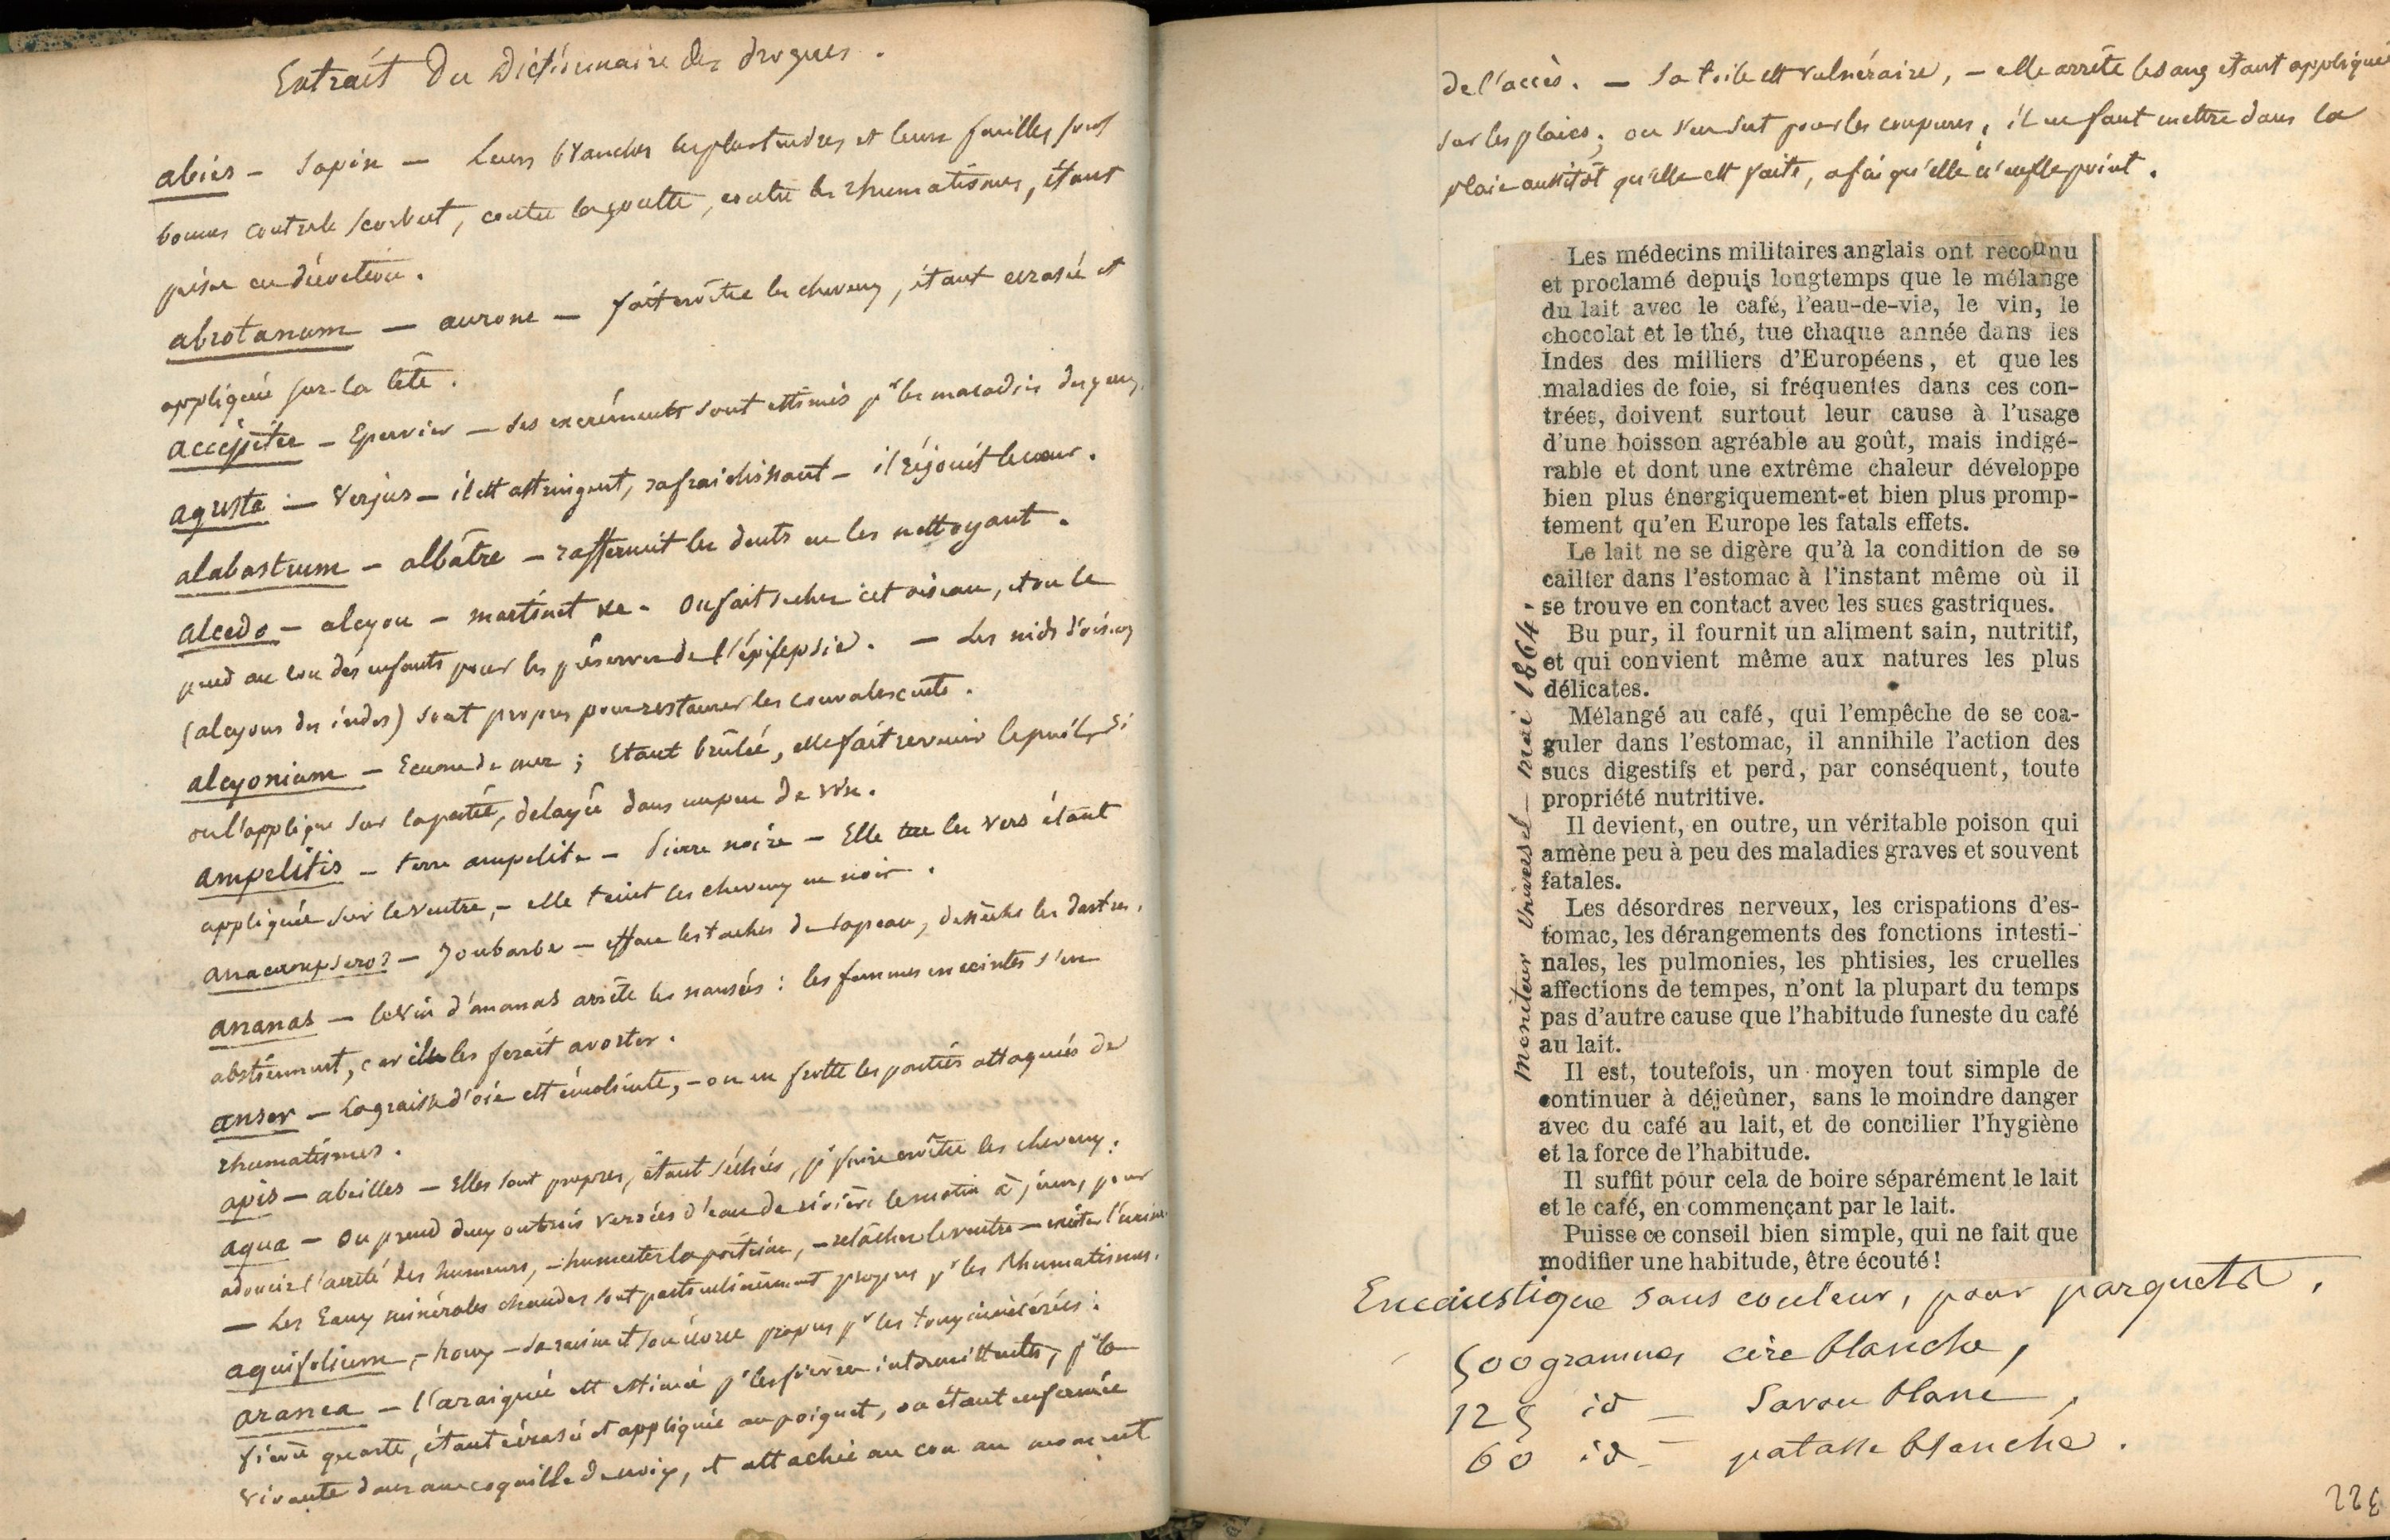 Extrait Du Dictionnaire des drogues.
abies - Sapin - Leurs branches les plus tendres et leurs feuilles sont
bonnes contre le scorbut, contre la goutte, contre les rhumatismes, étant
prises en décoction.
abrotanum - aurone - fait croître les cheveux, étant écrasée et
appliquée sur la tête.
accipiter - Epervier - ses excréments sont estimés pr les maladies des yeux.
agusta - Verjus - il est astringent, rafraichissant - il réjouit le cœur.
alabastrum - albâtre - raffermit les dents en les nettoyant.
alcedo - alcyon - martinet &c. On fait sécher cet oiseau, et on le
pend au cou des enfants pour les préserver de l'épilepsie. - Les nids d'oiseaux
(alcyons des indes) sont propres pour restaurer les convalescents.
alcyonium - Ecume de mer ; Etant brûlée, elle fait revenir le poil, si
on l'applique sur la partie, delayée dans un peu de vin.
ampelitis - terre ampelite - Pierre noire - Elle tue les vers étant
appliquée sur le ventre, - elle teint les cheveux en noir.
anacampseros - Joubarbe - efface les taches de la peau, dessèche les dartres.
ananas - le vin d'ananas arrête les nausées : les femmes enceintes s'en
abstiennent, car il les ferait avorter.
anser - La graisse d'oie est émolliente, - on en frotte les parties attaquées de
rhumatismes.
apis - abeilles - Elles sont propres, étant séchées, pr faire croître les cheveux.
aqua - On prend deux ou trois verrées d'eau de rivière le matin à jeun, pour
adoucir l'acreté des humeurs, - humecter la poitrine, - relâcher le ventre - exciter l'urine.
- Les Eaux minérales chaudes sont particulièrement propres pr les Rhumatismes.
aquifolium, - houx - sa racine et son écorce propres pr les toux invétérées.
aranea - l'araignée est estimée pr les fièvres intermittentes, pr la
fièvre quarte, étant écrasée et appliquée au poignet, ou étant enfermée
vivante dans une coquille de noix, et attachée au cou au moment
de l'accès. - Sa toile est vulnéraire, - elle arrête le sang étant appliquée
sur les plaies ; on s'en sert pour les coupures, il en faut mettre dans la
plaie aussitôt qu'elle est faite, afin qu'elle n'enfle point.
Les médecins militaires anglais ont reconnu
et proclamé depuis longtemps que le mélange
du lait avec le café, l'eau-de-vie, le vin, le
chocolat et le thé, tue chaque année dans les
Indes des milliers d'Européens, et que les
maladies de foie, si fréquentes dans ces con-
trées, doivent surtout leur cause à l'usage
d'une boisson agréable au goût, mais indigé-
rable et dont une extrême chaleur développe
bien plus énergiquement et bien plus promp-
tement qu'en Europe les fatals effets.
Le lait ne se digère qu'à la condition de se
cailler dans l'estomac à l'instant même où il
se trouve en contact avec les sucs gastriques.
Bu pur, il fournit un aliment sain, nutritif,
et qui convient même aux natures les plus
délicates.
Mélangé au café, qui l'empêche de se coa-
guler dans l'estomac, il annihile l'action des
sucs digestifs et perd, par conséquent, toute
propriété nutritive.
Il devient, en outre, un véritable poison qui
amène peu à peu des maladies graves et souvent
fatales.
Les désordres nerveux, les crispations d'es-
tomac, les dérangements des fonctions intesti-
nales, les pulmonies, les phtisies, les cruelles
affections de tempes, n'ont la plupart du temps
pas d'autre cause que l'habitude funeste du café
au lait.
Il est, toutefois, un moyen tout simple de
continuer à déjeûner, sans le moindre danger
avec du café au lait, et de concilier l'hygiène
et la force de l'habitude.
Il suffit pour cela de boire séparément le lait
et le café, en commençant par le lait.
Puisse ce conseil bien simple, qui ne fait que
modifier une habitude, être écouté !
moniteur Universel - mai 1864.
Encaustique sans couleur, pour parquets.
500 grammes cire blanche,
125 id - Savon blanc,
60 id - potasse blanche.